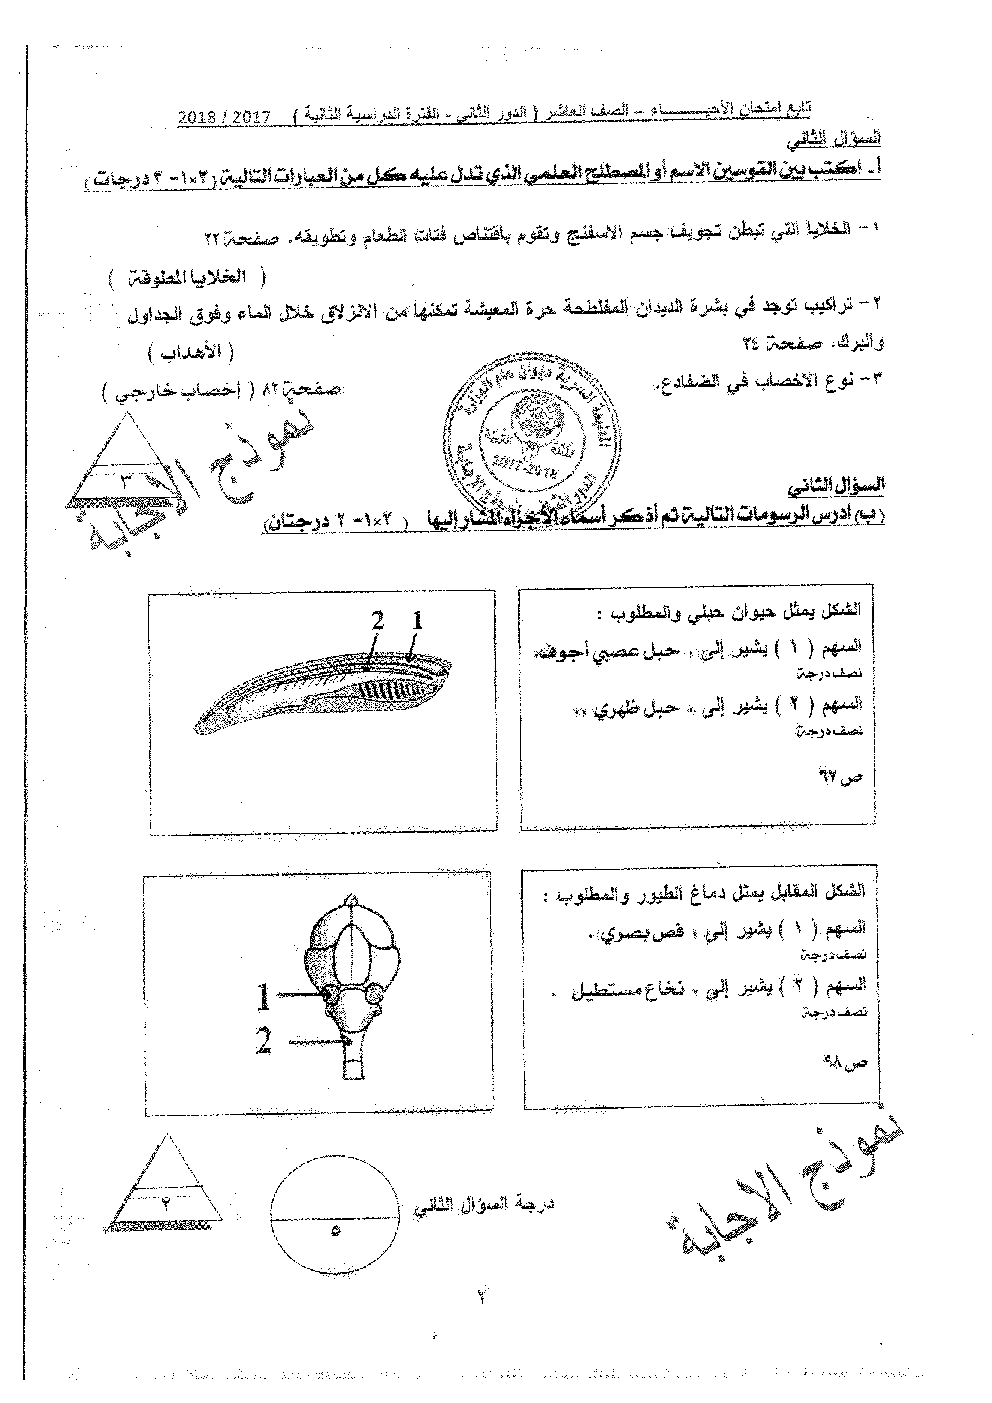 تابع امتحان الأحيـــــــاء – الصف العاشر ( الدور الثاني - الفترة الدراسية الثانية ) 2017 / 2018
السؤال الثاني
أ- اكتب بين القوسين الاسم أو المصطلح العلمي الذي تدل عليه كل من العبارات التالية ( ٣×١- ٣ درجات )
١- الخلايا التي تبطن تجويف جسم الاسفنج وتقوم باقتناص فتات الطعام وتطويقه. صفحة ٢٢
( الخلايا المطوقة )
٢- تراكيب توجد في بشرة الديدان المفلطحة حرة المعيشة تمكنها من الانزلاق خلال الماء وفوق الجداول
والبرك. صفحة ٣٤
( الأهداب )
٣- نوع الاخصاب في الضفادع.
صفحة ٨٢ ( إخصاب خارجي )
٣
نموذج الاجابة
2017-2018
السؤال الثاني
(ب) ادرس الرسومات التالية ثم أذكر أسماء الأجزاء المشار إليها ( ٢×١- ٢ درجتان)
الشكل يمثل حيوان حبلي والمطلوب :
السهم ( ١ ) يشير إلى : حبل عصبي أجوف.
نصف درجة
السهم ( ٢ ) يشير إلى : حبل ظهري
نصف درجة
ص ٦٧
2 1
الشكل المقابل يمثل دماغ الطيور والمطلوب :
السهم ( ١ ) يشير إلى : فص بصري.
نصف درجة
السهم ( ٢ ) يشير إلى : نخاع مستطيل .
نصف درجة
ص ٩٨
1
2
نموذج الاجابة
٢
درجة السؤال الثاني
٥
٢